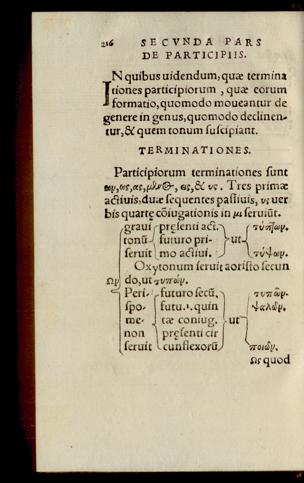 216 SECVNDA PARS
DE PARTICIPIIS.
IN quibus uidendum, quæ termina
tiones participiorum, quæ eorum
formatio, quomodo moueantur de
genere in genus, quomodo declinen-
tur, & quem tonum suscipiant.
TERMINATIONES.
Participiorum terminationes sunt
ων, ως, ας, μενος, εις, & υς. Tres primæ
actiuis, duæ sequentes passiuis, υς uer
bis quartę cōiugationis in μι seruiūt.
graui pręsenti act. τύπτων.
tonū futuro pri- ut
seruit mo actiui. τύψων.
Oxytonum seruit aoristo secun
Ων do, ut τυπών.
Peri- futuro secū. τυπῶν.
spo- futu. 1. quin ψαλῶν.
me- tæ coniug. ut
non pręsenti cir
seruit cunflexorū ποιῶν.
Ως quod